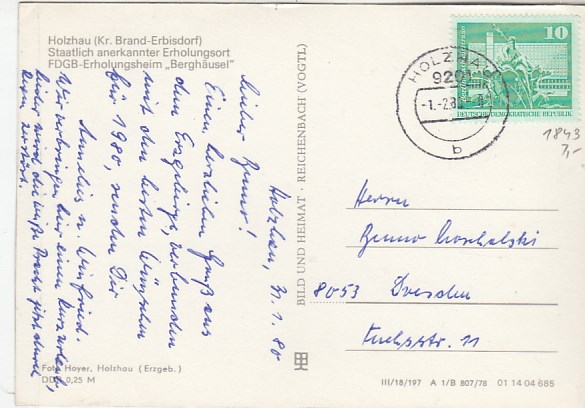 Holzhau (Kr. Brand-Erbisdorf)
Staatlich anerkannter Erholungsort
FDGB-Erholungsheim „Berghäusel"
Holzhau, 31.1.80
Lieber Benno!
Einen herzlichen Gruß aus
dem Erzgebirge, verbunden
mit den besten Wünschen
für 1980, senden Dir
Annelies u. Winfried.
Wir verbringen hier einen Kurzurlaub,
leider wird die weiße Pracht jetzt durch
Regen zerstört.
Foto Hoyer, Holzhau (Erzgeb.)
DDR 0,25 M
BILD UND HEIMAT · REICHENBACH (VOGTL)
10
DEUTSCHE DEMOKRATISCHE REPUBLIK
HOLZHAU
9201
-1.-2.80
b
1843
7,-
Herrn
Benno
8053 Dresden
11
III/18/197 A 1/B 807/78 01 14 04 685